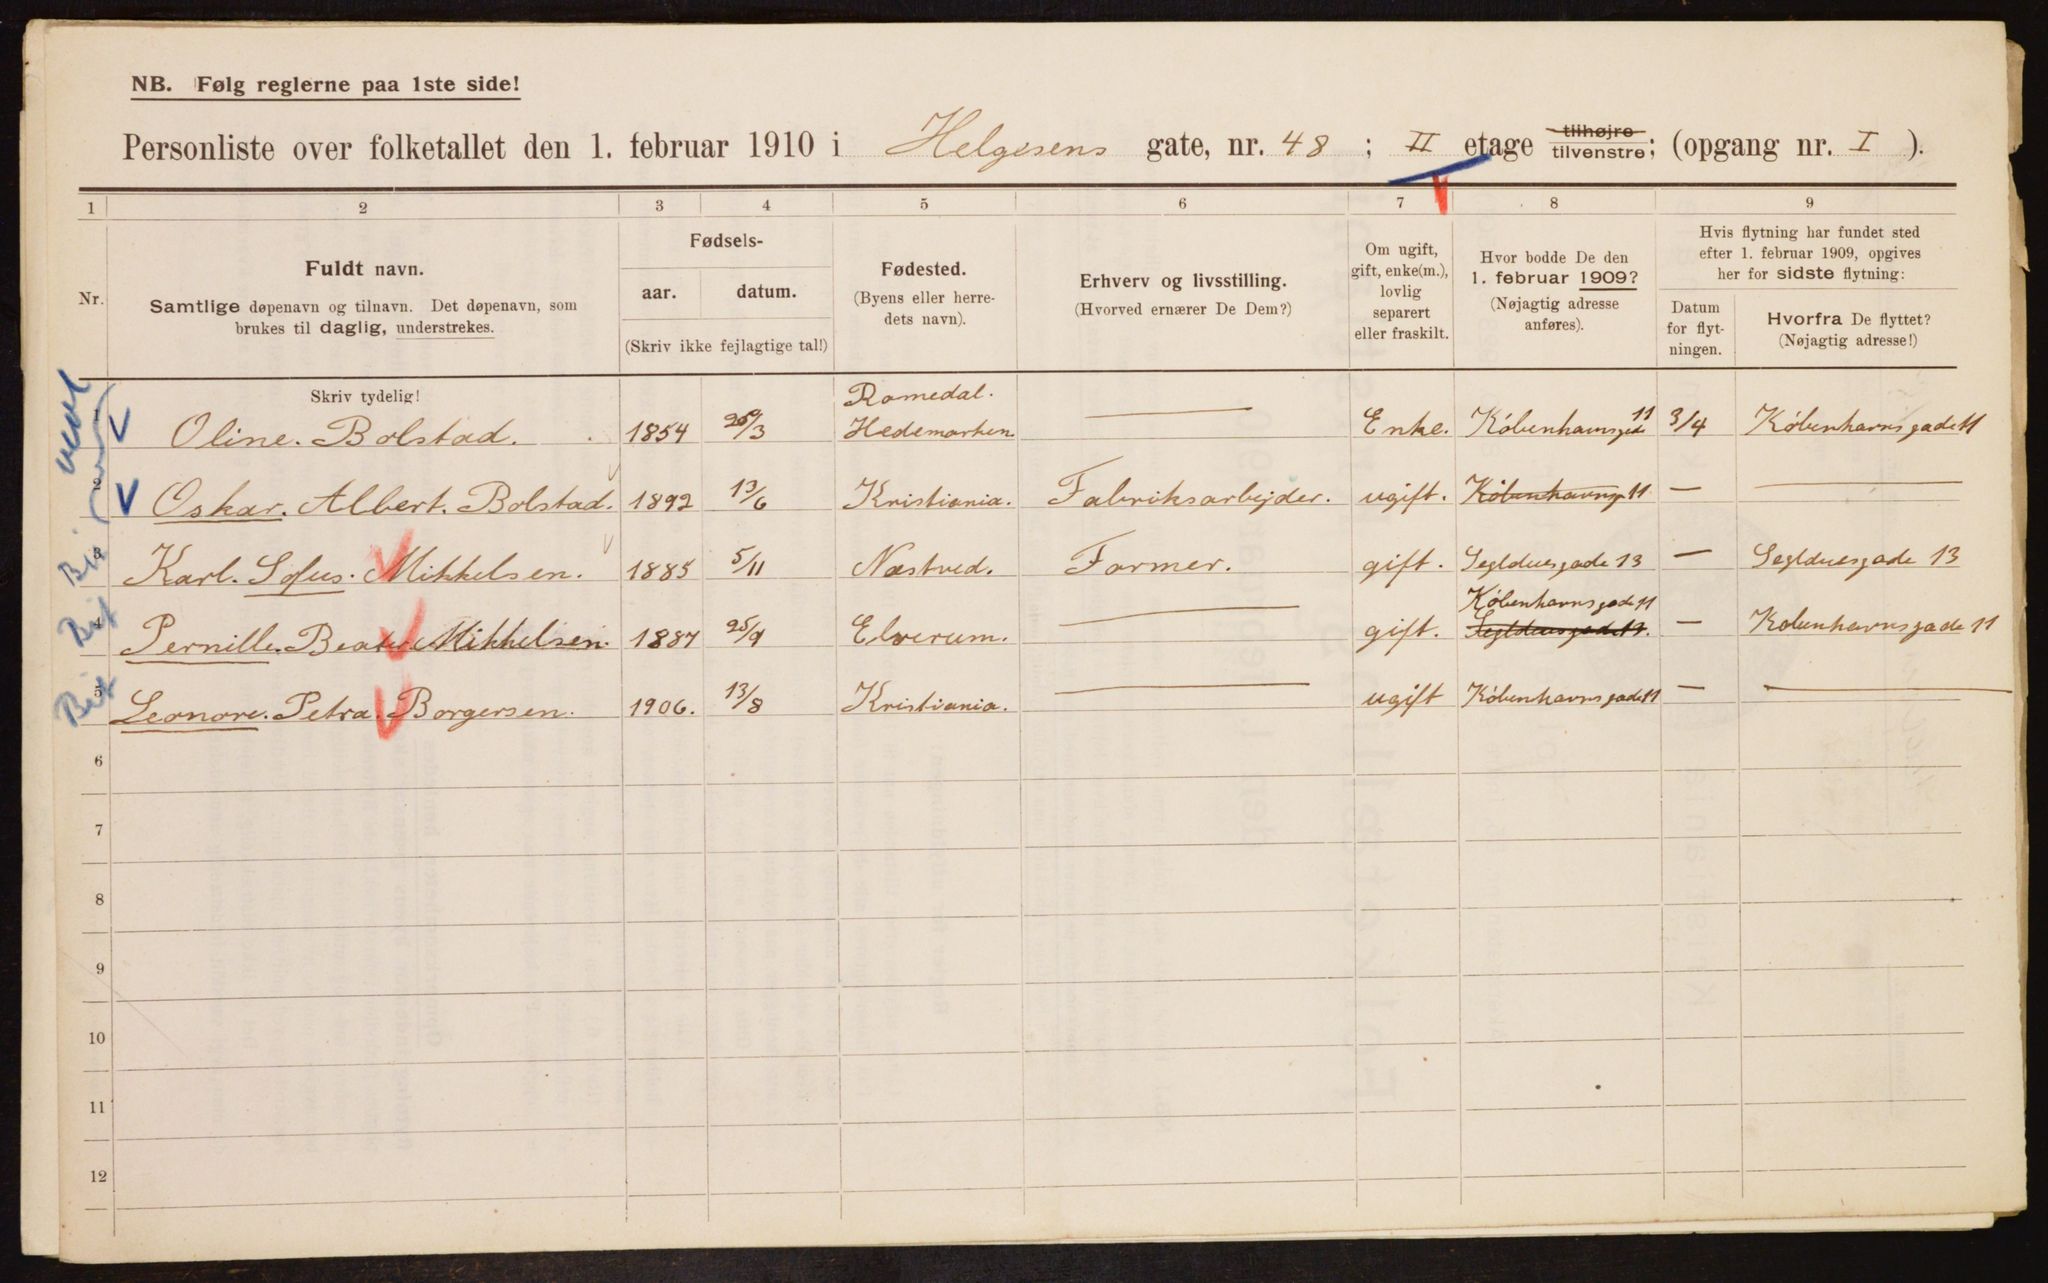 NB. Følg reglerne paa 1ste side!
Personliste over folketallet den 1. februar 1910 i Helgesens gate, nr. 48 ; II etage tilhøjre tilvenstre; (opgang nr. I ).
1 2 3 4 5 6 7 8 9
Nr.
Fuldt navn.
Samtlige døpenavn og tilnavn. Det døpenavn, som
brukes til daglig, understrekes.
Fødsels-
aar. datum.
(Skriv ikke fejlagtige tal!)
Fødested.
(Byens eller herre-
dets navn).
Erhverv og livsstilling.
(Hvorved ernærer De Dem?)
Om ugift,
gift, enke(m.),
lovlig
separert
eller fraskilt.
Hvor bodde De den
1. februar 1909?
(Nøjagtig adresse
anføres).
Hvis flytning har fundet sted
efter 1. februar 1909, opgives
her for sidste flytning:
Datum
for flyt-
ningen.
Hvorfra De flyttet?
(Nøjagtig adresse!)
Skriv tydelig!
1 Oline. Bolstad. 1854 /3 Romedal. Hedemarken. — Enke. Københavnsgade 11 3/4 Københavnsgade 11
2 Oskar. Albert. Bolstad. 1892 13/6 Kristiania. Fabriksarbejder. ugift. Københavnsg. 11 — —
3 Karl. Sofus. Mikkelsen. 1885 5/11 Næstved. Former. gift. Seglduesgade 13 — Seglduesgade 13
4 Pernille. Mikkelsen. 1887 25/9 Elverum. — gift. Københavnsgade 11 Seglduesgade 13. — Københavnsgade 11
5 Leonore. Petra. Borgersen. 1906. 13/8 Kristiania. — ugift Københavnsgade 11 — —
6
7
8
9
10
11
12